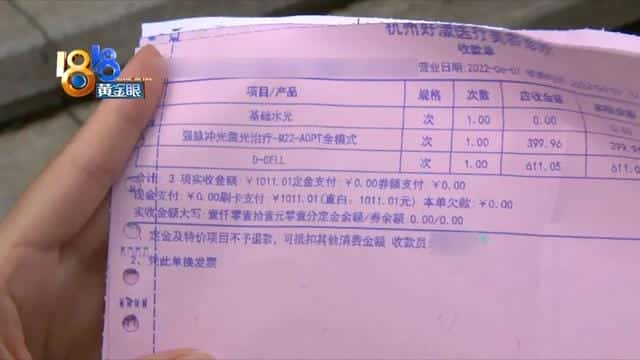 1818
黄金眼
杭州好濠医疗美容
收款单
营业日期:2022-06-07
项目/产品 规格 次数 应收金额
基础水光 次 1.00 0.00
强脉冲光激光治疗-M22-AOPT全模式 次 1.00 399.96 399.96
D-CELL 次 1.00 611.05 611.05
合计: 3 项实收金额 ¥1011.01定金支付: ¥0.00券额支付 ¥0.00
现金支付: ¥0.00刷卡支付 ¥1011.01(直白: 1011.01元) 本单欠款: ¥0.00
实收金额大写: 壹仟零壹拾壹元零壹分定金余额/券余额: 0.00/0.00
1、定金及特价项目不予退款,可抵扣其他消费金额 收款员
2、凭此单换发票